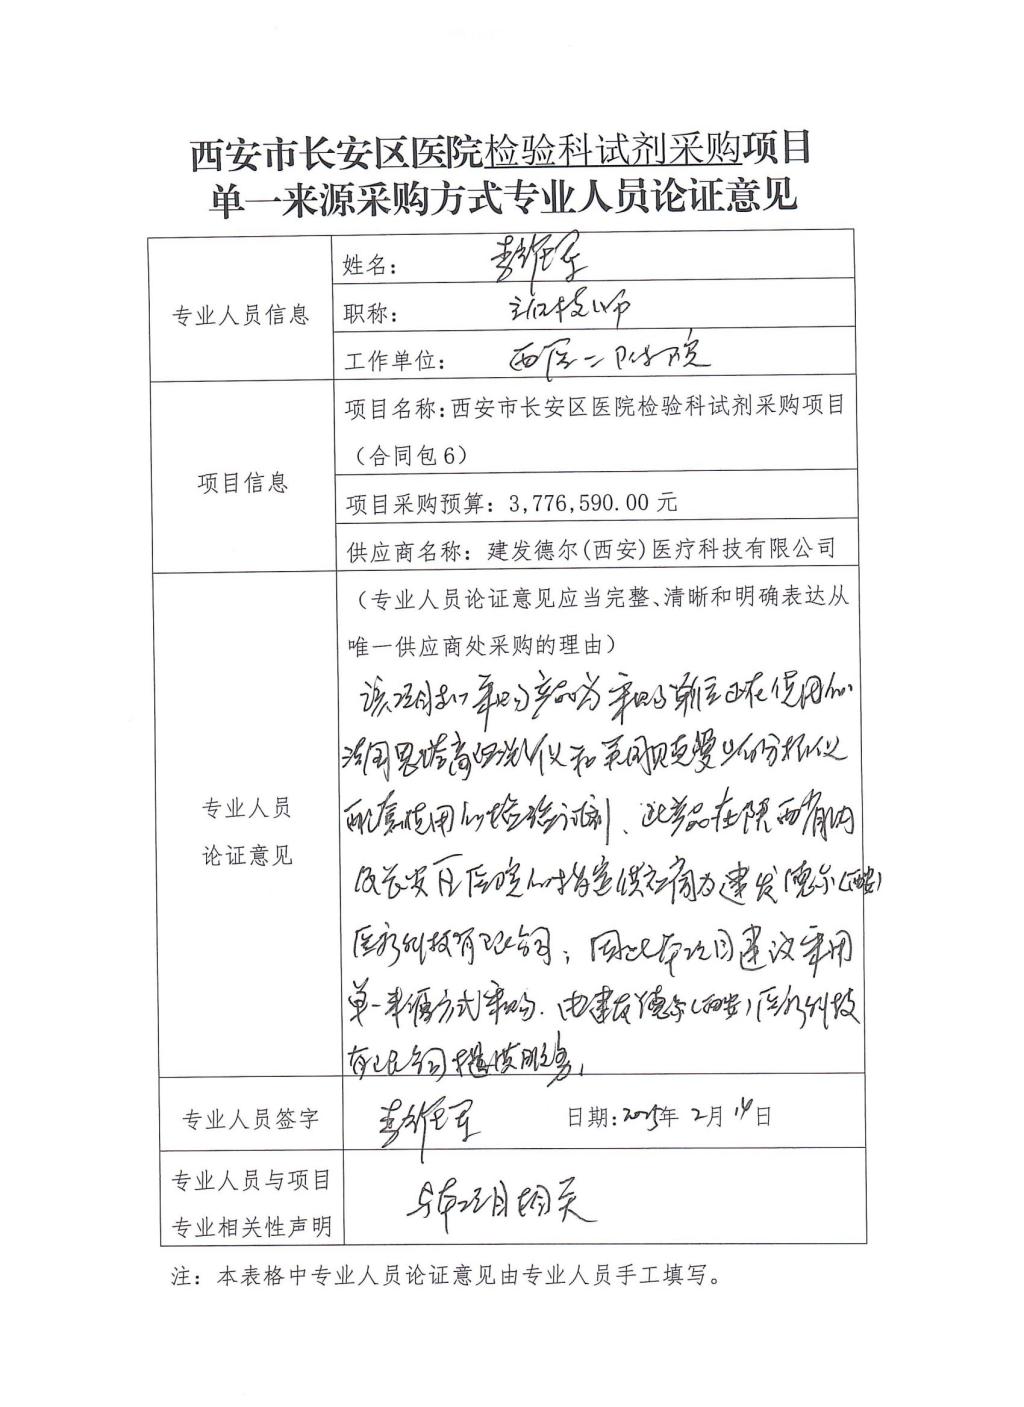 西安市长安区医院检验科试剂采购项目
单一来源采购方式专业人员论证意见
专业人员信息
姓名：
职称：主任技师
工作单位：西医二附院
项目信息
项目名称：西安市长安区医院检验科试剂采购项目
（合同包6）
项目采购预算：3,776,590.00 元
供应商名称：建发德尔(西安)医疗科技有限公司
专业人员
论证意见
（专业人员论证意见应当完整、清晰和明确表达从
唯一供应商处采购的理由）
该项目拟采购产品为采购单位正在使用的
法国思塔高凝血仪和美国贝克曼生化分析仪
配套使用的检验试剂、此产品在陕西省内
及长安区医院的指定供应商为建发德尔(西安)
医疗科技有限公司；因此本项目建议采用
单一来源方式采购．由建发德尔(西安)医疗科技
有限公司提供服务．
专业人员签字
日期：2025年 2月 14日
专业人员与项目
专业相关性声明
与本项目相关
注：本表格中专业人员论证意见由专业人员手工填写。